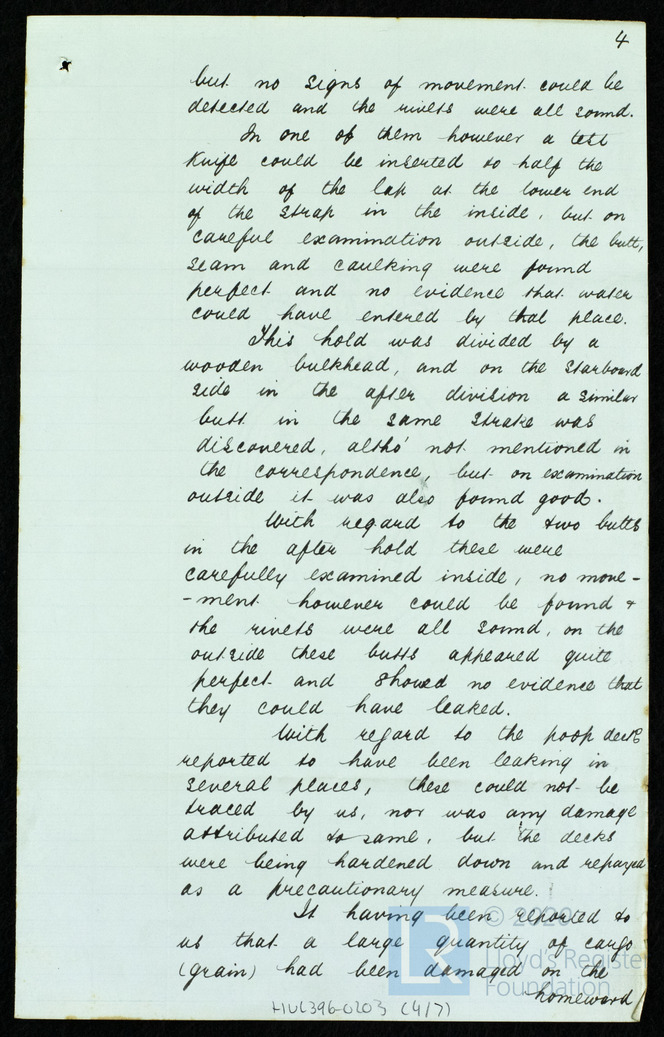 4
but no signs of movement could be
detected and the rivets were all sound.
In one of them however a test
Knife could be inserted to half the
width of the lap at the lower end
of the strap in the inside, but on
careful examination outside, the butt,
seam and caulking were found
perfect and no evidence that water
could have entered by that place.
This hold was divided by a
wooden bulkhead, and on the starboard
side in the after division a similar
butt in the same strake was
discovered, altho' not mentioned in
the correspondence, but on examination
outside it was also found good.
With regard to the two butts
in the after hold these were
carefully examined inside, no move-
-ment however could be found &
the rivets were all sound, on the
outside these butts appeared quite
perfect and showed no evidence that
they could have leaked.
With regard to the poop deck
reported to have been leaking in
several places, these could not be
traced by us, nor was any damage
attributed to same, but the decks
were being hardened down and repayed
as a precautionary measure.
It having been reported to
us that a large quantity of cargo
(grain) had been damaged on the
homeward
© 2020
Lloyd's Register
Foundation
HUL396-0203 (4/7)